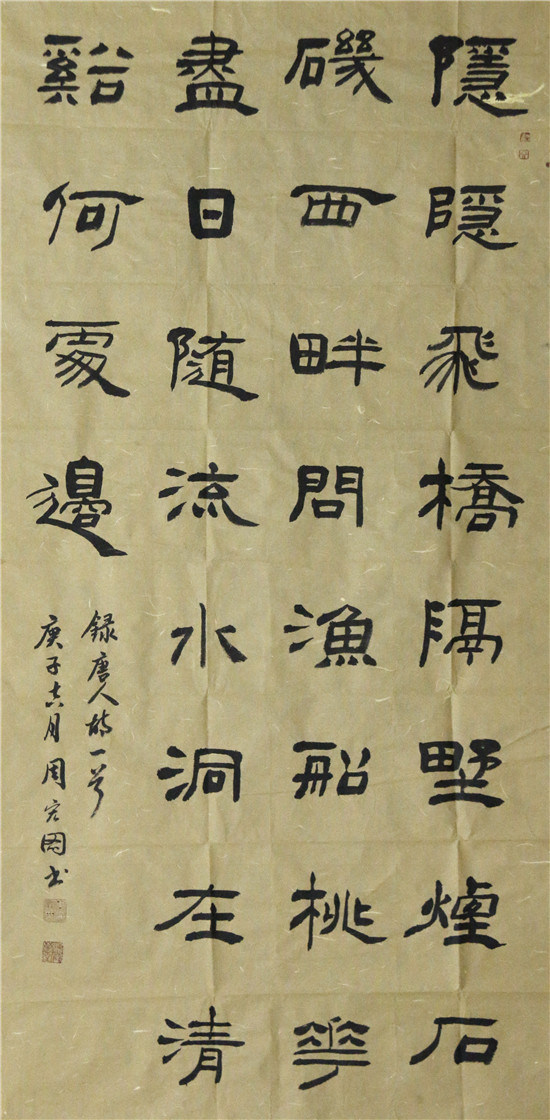 隱隱飛橋隔野煙石
磯西畔問漁船桃華
盡日隨流水洞在清
谿何處邊
録唐人詩一首
庚子 月周宏國书